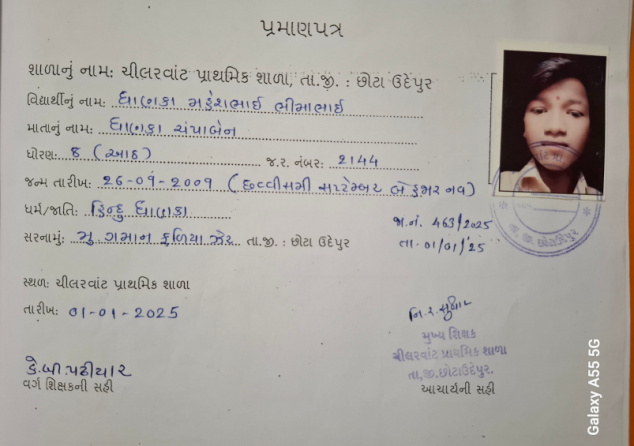 પ્રમાણપત્ર
શાળાનું નામ: ચીલરવાંટ પ્રાથમિક શાળા, તા.જી. : છોટા ઉદેપુર
વિદ્યાર્થીનું નામ: ધાણકા મહેશભાઈ ભીમાભાઈ
માતાનું નામ: ધાણકા ચંપાબેન
ધોરણ: 8 (આઠ) જ.ર. નંબર: 2144
જન્મ તારીખ: 26-09-2009 (છવ્વીસમી સપ્ટેમ્બર બે હજાર નવ)
ધર્મ/જાતિ: હિન્દુ ધાણકા
જા.નં. 463/2025
સરનામું: મુ. ગમાન ફળિયા ઝેર તા.જી. : છોટા ઉદેપુર
તા. 01/01/'25
તા. જી. છોટાઉદેપુર
સ્થળ: ચીલરવાંટ પ્રાથમિક શાળા
તારીખ: 01-01-2025
મુખ્ય શિક્ષક
ચીલરવાંટ પ્રાથમિક શાળા
તા.જી. છોટાઉદેપુર.
કે.બી.પઢીયાર
વર્ગ શિક્ષકની સહી
આચાર્યની સહી
Galaxy A55 5G